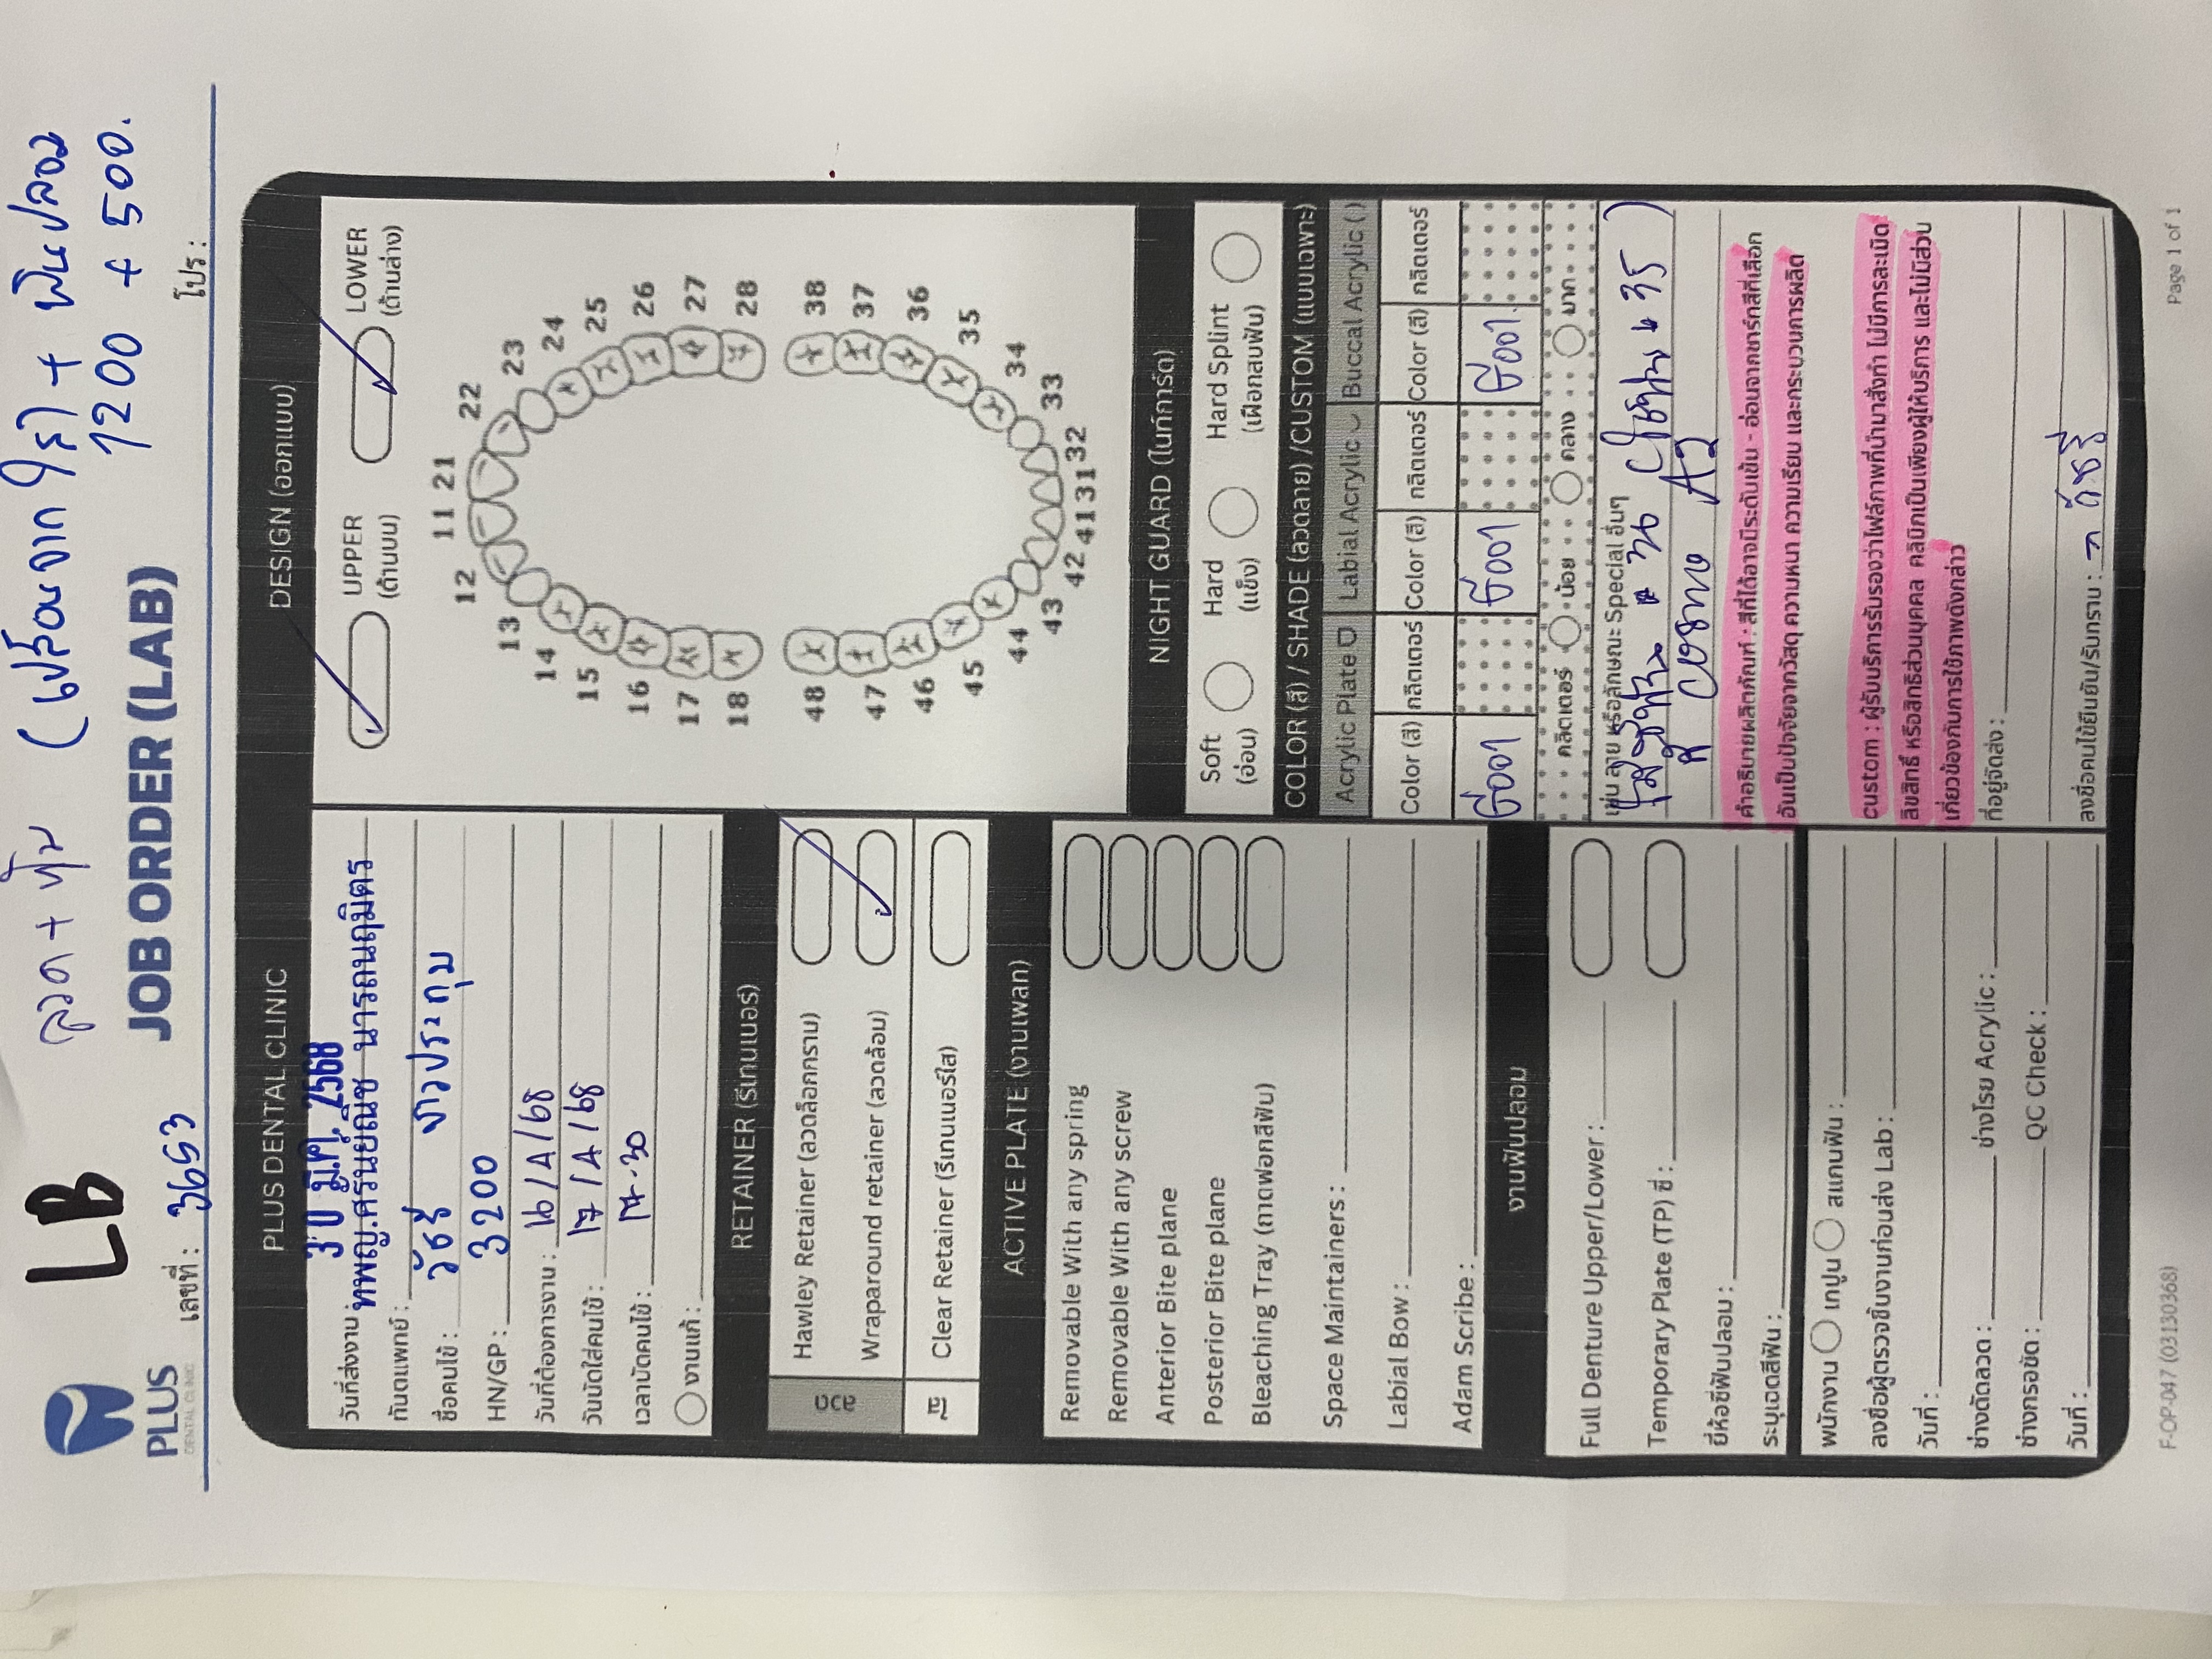 LB
ลวด + (เปลี่ยนจาก ใส) + ฟันปลอม
1200 + 500.
PLUS
DENTAL CLINIC
JOB ORDER (LAB)
เลขที่ : 3653
โปร :
PLUS DENTAL CLINIC
30 มี.ค. 2568
วันที่ส่งงาน :
ทพญ.ศรันย์ณิช นารถนฤมิตร
ทันตแพทย์ :
ชื่อคนไข้ : วัชรี ขาวประทุม
HN/GP : 3200
วันที่ต้องการงาน : 16/4/68
วันนัดใส่คนไข้ : 17/4/68
เวลานัดคนไข้ : 17.30
งานแก้ :
RETAINER (รีเทนเนอร์)
ลวด
Hawley Retainer (ลวดล็อกกราม)
Wraparound retainer (ลวดล้อม)
ใส
Clear Retainer (รีเทนเนอร์ใส)
ACTIVE PLATE (งานเพลท)
Removable With any spring
Removable With any screw
Anterior Bite plane
Posterior Bite plane
Bleaching Tray (ถาดฟอกสีฟัน)
Space Maintainers :
Labial Bow :
Adam Scribe :
งานฟันปลอม
Full Denture Upper/Lower :
Temporary Plate (TP) ซี่ :
ยี่ห้อซี่ฟันปลอม :
ระบุเฉดสีฟัน :
พนักงาน เทปูน สแกนฟัน :
ลงชื่อผู้ตรวจชิ้นงานก่อนส่ง Lab :
วันที่ :
ช่างดัดลวด : ช่างโรย Acrylic :
ช่างกรอขัด : QC Check :
วันที่ :
DESIGN (ออกแบบ)
UPPER
(ด้านบน)
LOWER
(ด้านล่าง)
11 21
12 22
13 23
14 24
15 25
16 26
17 27
18 28
48 38
47 37
46 36
45 35
44 34
43 33
42 41 31 32
NIGHT GUARD (ไนท์การ์ด)
Soft
(อ่อน)
Hard
(แข็ง)
Hard Splint
(เฝือกสบฟัน)
COLOR (สี) / SHADE (ลวดลาย) /CUSTOM (แบบเฉพาะ)
Acrylic Plate Labial Acrylic Buccal Acrylic ( )
Color (สี) กลิตเตอร์ Color (สี) กลิตเตอร์ Color (สี) กลิตเตอร์
G001 G001 G001.
กลิตเตอร์ น้อย กลาง มาก
เช่น ลาย หรือลักษณะ Special อื่นๆ
ใส่ซี่ฟัน # 36 (ใช้ฟัน # 35)
สี cosmo A2
คำอธิบายผลิตภัณฑ์ : สีที่ได้อาจมีระดับเข้ม - อ่อนจากชาร์ทสีที่เลือก
อันเป็นปัจจัยจากวัสดุ ความหนา ความเรียบ และกระบวนการผลิต
custom : ผู้รับบริการรับรองว่าไฟล์ภาพที่นำมาสั่งทำ ไม่มีการละเมิด
ลิขสิทธิ์ หรือสิทธิส่วนบุคคล คลินิกเป็นเพียงผู้ให้บริการ และไม่มีส่วน
เกี่ยวข้องกับการใช้ภาพดังกล่าว
ที่อยู่จัดส่ง :
ลงชื่อคนไข้ยืนยัน/รับทราบ : วัชรี
F-OP-047 (03130368)
Page 1 of 1